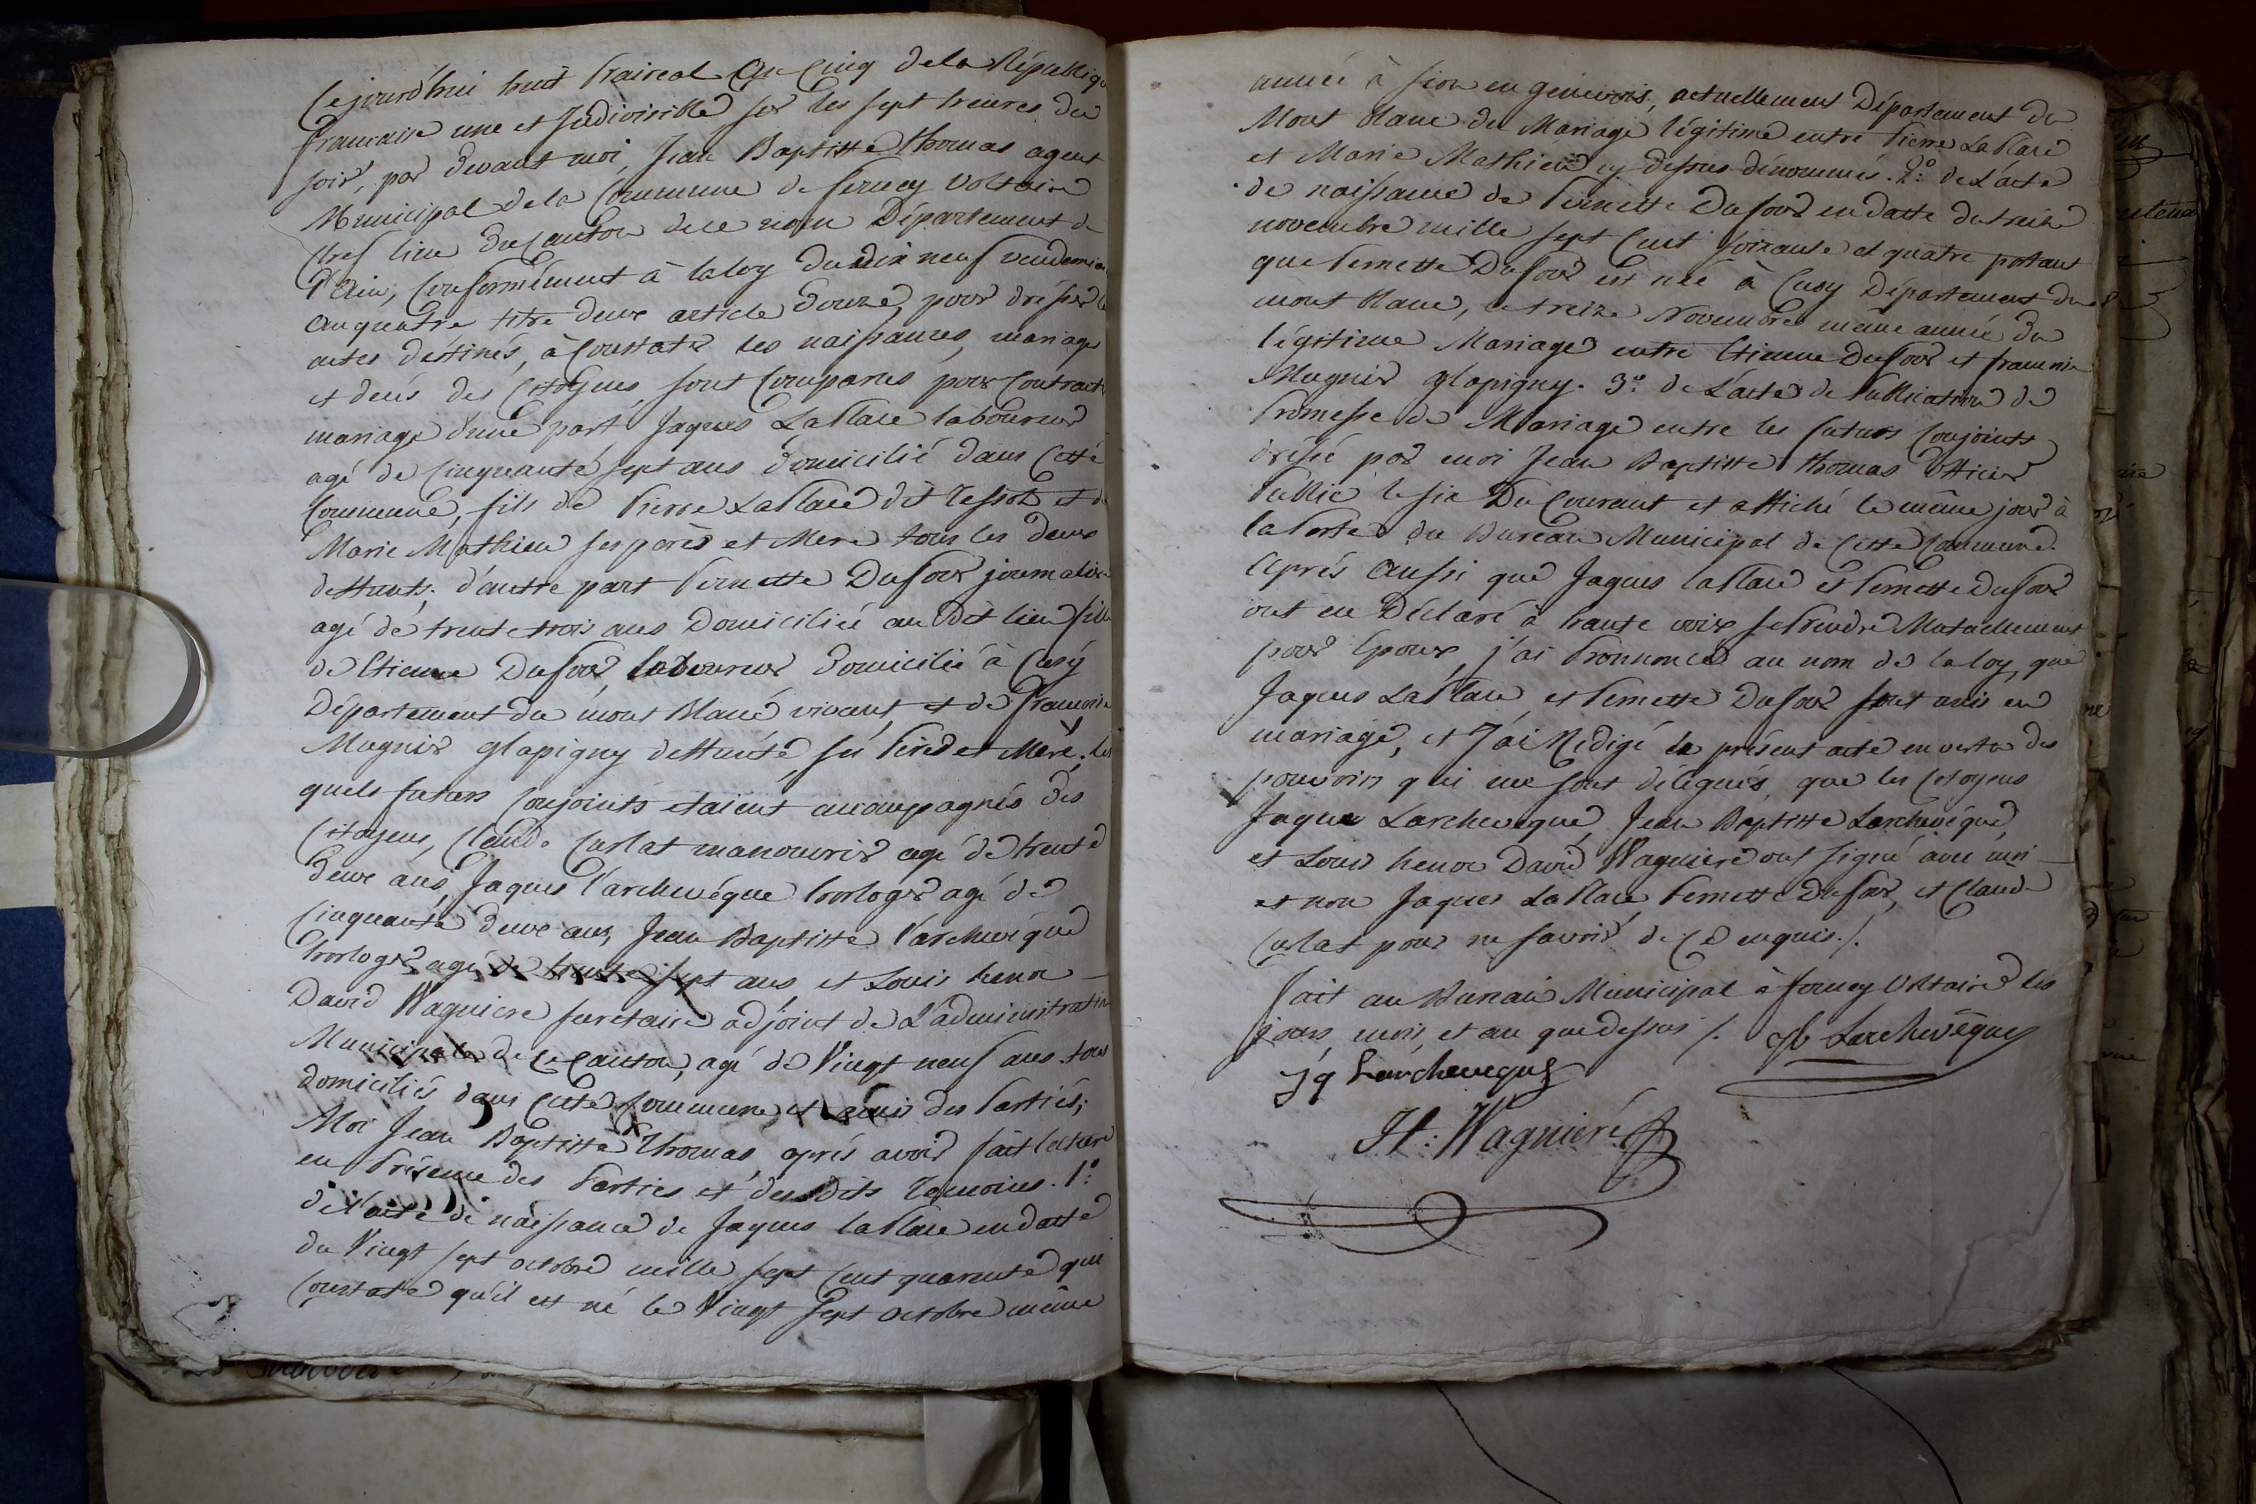 Cejourd'hui huit Praireal An Cinq de la Républiq
francaise une et Indivisible sur les sept heures du
soir, par devant moi, Jean Baptiste thomas agent
Municipal de la Commune de ferney Voltaire
Chef lieu du Canton de ce nom Département de
l'Ain, Conformément à la loy du dix neuf vendemia
an quatre titre deux article douze, pour dresser les
actes déstinés, à Constater les naissances, mariages
et décés des Citoyens, sont Comparus pour Contracter
mariage d'une part, Jaques LaPlace laboureur
agé de Cinquante sept ans domicilié dans Cette
Commune, fils de Pierre LaPlace dit Tessot et de
Marie Mathieu ses pères et Mere tous les deux
deffunts, d'autre part Pernette Dufour journalière
agé de trente trois ans Domiciliée au dit lieu fille
de Etienne Dufour, laboureur domicilié à Cusy
Département du mont Blanc vivant, et de francoise
Magnin glapigny deffunte, su Pères et Mère, les
quels futurs Conjoints etaient accompagnés des
Citoyens, Claude Carlat manouvrir agé de trente
deux ans, Jaques l'archevéque horloger agé de
Cinquante deux ans, Jean Baptiste l'archevéque
horloger agé de trente sept ans et Louis henri
David Wagniere secretaire adjoint de L'administration
Municipale de ce Canton, agé de Vingt neuf ans tous
domiciliés dans Cette Commune et amis des Parties;
Moi Jean Baptiste Thomas, aprés avoir fait lecture
en Présence des Parties et desdits Temoins. 1°:
de l'acte de naissance de Jaques laPlace en datte
du Vingt sept octobre mille sept Cent quarente qui
Constate qu'il est né le Vingt Sept octobre même
année à sion en genevois, actuellement Département du
Mont blanc du Mariage légitime entre Pierre LaPlace
et Marie Mathieu cy dessus dénommés. 2°: de L'acte
de naissance de Pernette Dufour en datte du treize
novembre mille sept Cent soixante et quatre portant
que Pernette Dufour est née à Cusy Département du
mont blanc, le treize Novembre même année du
légitime Mariage entre Etienne Dufour et francoise
Magnin glapigny. 3°: de L'acte de Publication de
Promesse de Mariage entre les futurs Conjoints
dréssé par moi Jean Baptiste thomas Officier
Public le six Du Courant et affiché le même jour à
la Porte du Bureau Municipal de Cette Commune.
Aprés Aussi que Jaques laPlace et Pernette Dufour
ont eu Déclaré à haute voix se Prendre Mutuellement
pour Epoux, j'ai Prononcé au nom de la loy, que
Jaques LaPlace et Pernette Dufour sont unis en
mariage, et J'ai Redigé le présent acte en vertu des
pouvoirs qui me sont délégués, que les Citoyens
Jaques Larcheveque, Jean Baptiste Larchevéque,
et Louis henri David Wagniere ont signé avec moi
et non Jaques LaPlace, Pernette Dufour, et Claude
Carlat pour ne savoir de Ce enquis ./.
fait au Bureau Municipal à ferney Voltaire les
jours, mois, et an que dessus ./. Jb Larchevêque
Jq Larcheveque
H: Wagnière